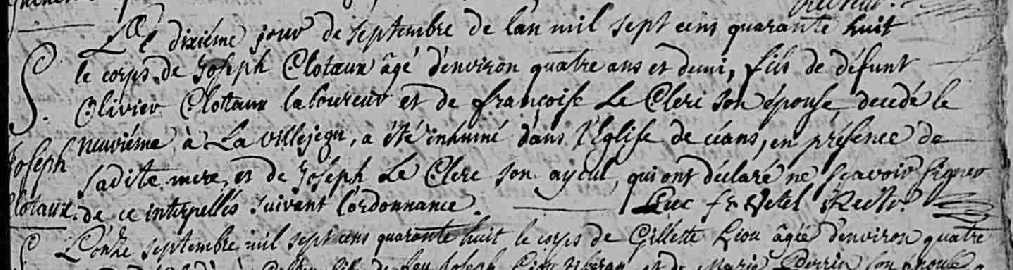 Le dixiéme jour de Septembre de lan mil sept cens quarante huit
S. le corps de Joseph Clotaux âgé d'environ quatre ans et demi, fils de défunt
Olivier Clottaux laboureur et de françoise Le Clerc son épouse decedé le
neuviéme à La villejegu, a été inhumé dans l'Eglise de céans, en présence de
Joseph sadite mere, et de Joseph Le Clerc son ayeul, qui ont déclaré ne scavoir signer
Clotaux. de ce interpellés suivant l'ordonnance. Luc Rect
L'onze septembre mil sept cens quarante huit le corps de Gillette âgée d'environ quatre
Joseph et de Marie son épouse